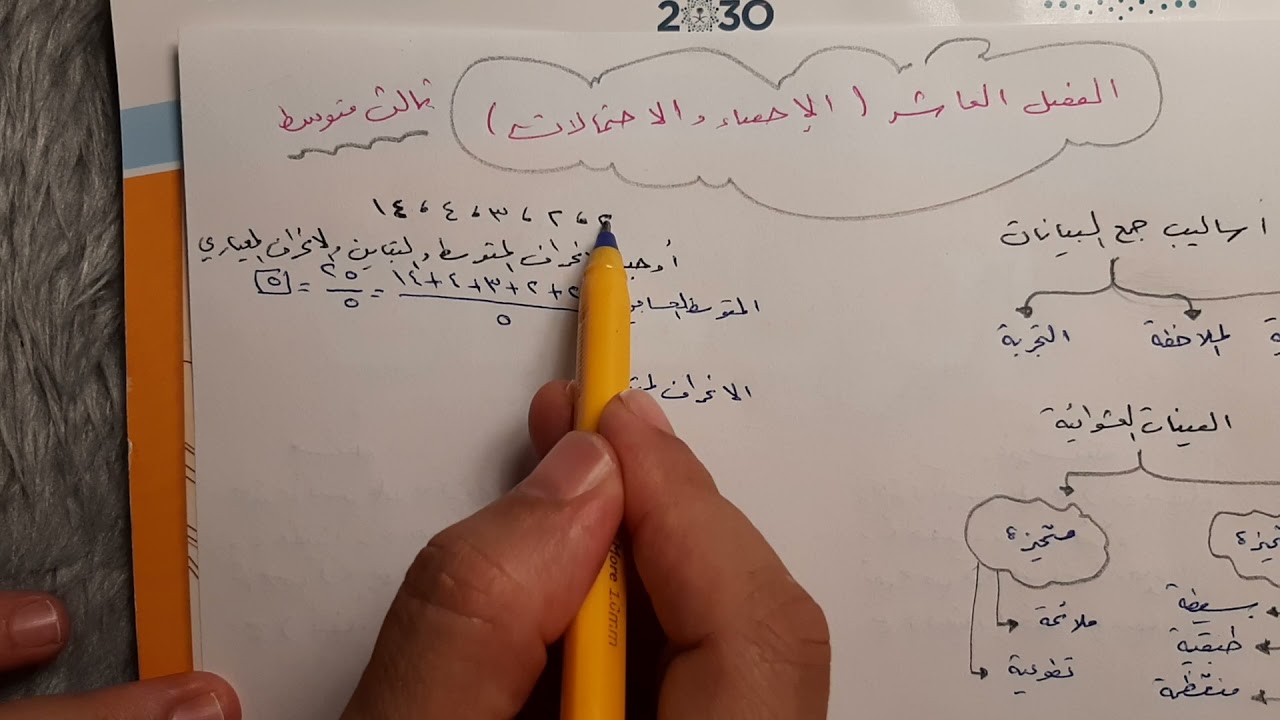 2030
الفصل العاشر ( الإحصاء والاحتمالات )
ثالث متوسط
٢ ، ٢ ، ٣ ، ٤ ، ١٤
أوجد انحراف المتوسط والتباين والانحراف المعياري
المتوسط الحسابي ٢+٢+٣+٤+١٤ / ٥ = ٢٥ / ٥ = ٥
الانحراف
أساليب جمع البيانات
الملاحظة
التجربة
العينات العشوائية
متحيزة
ملائمة
تطوعية
بسيطة
طبقية
منتظمة
More 1.0mm